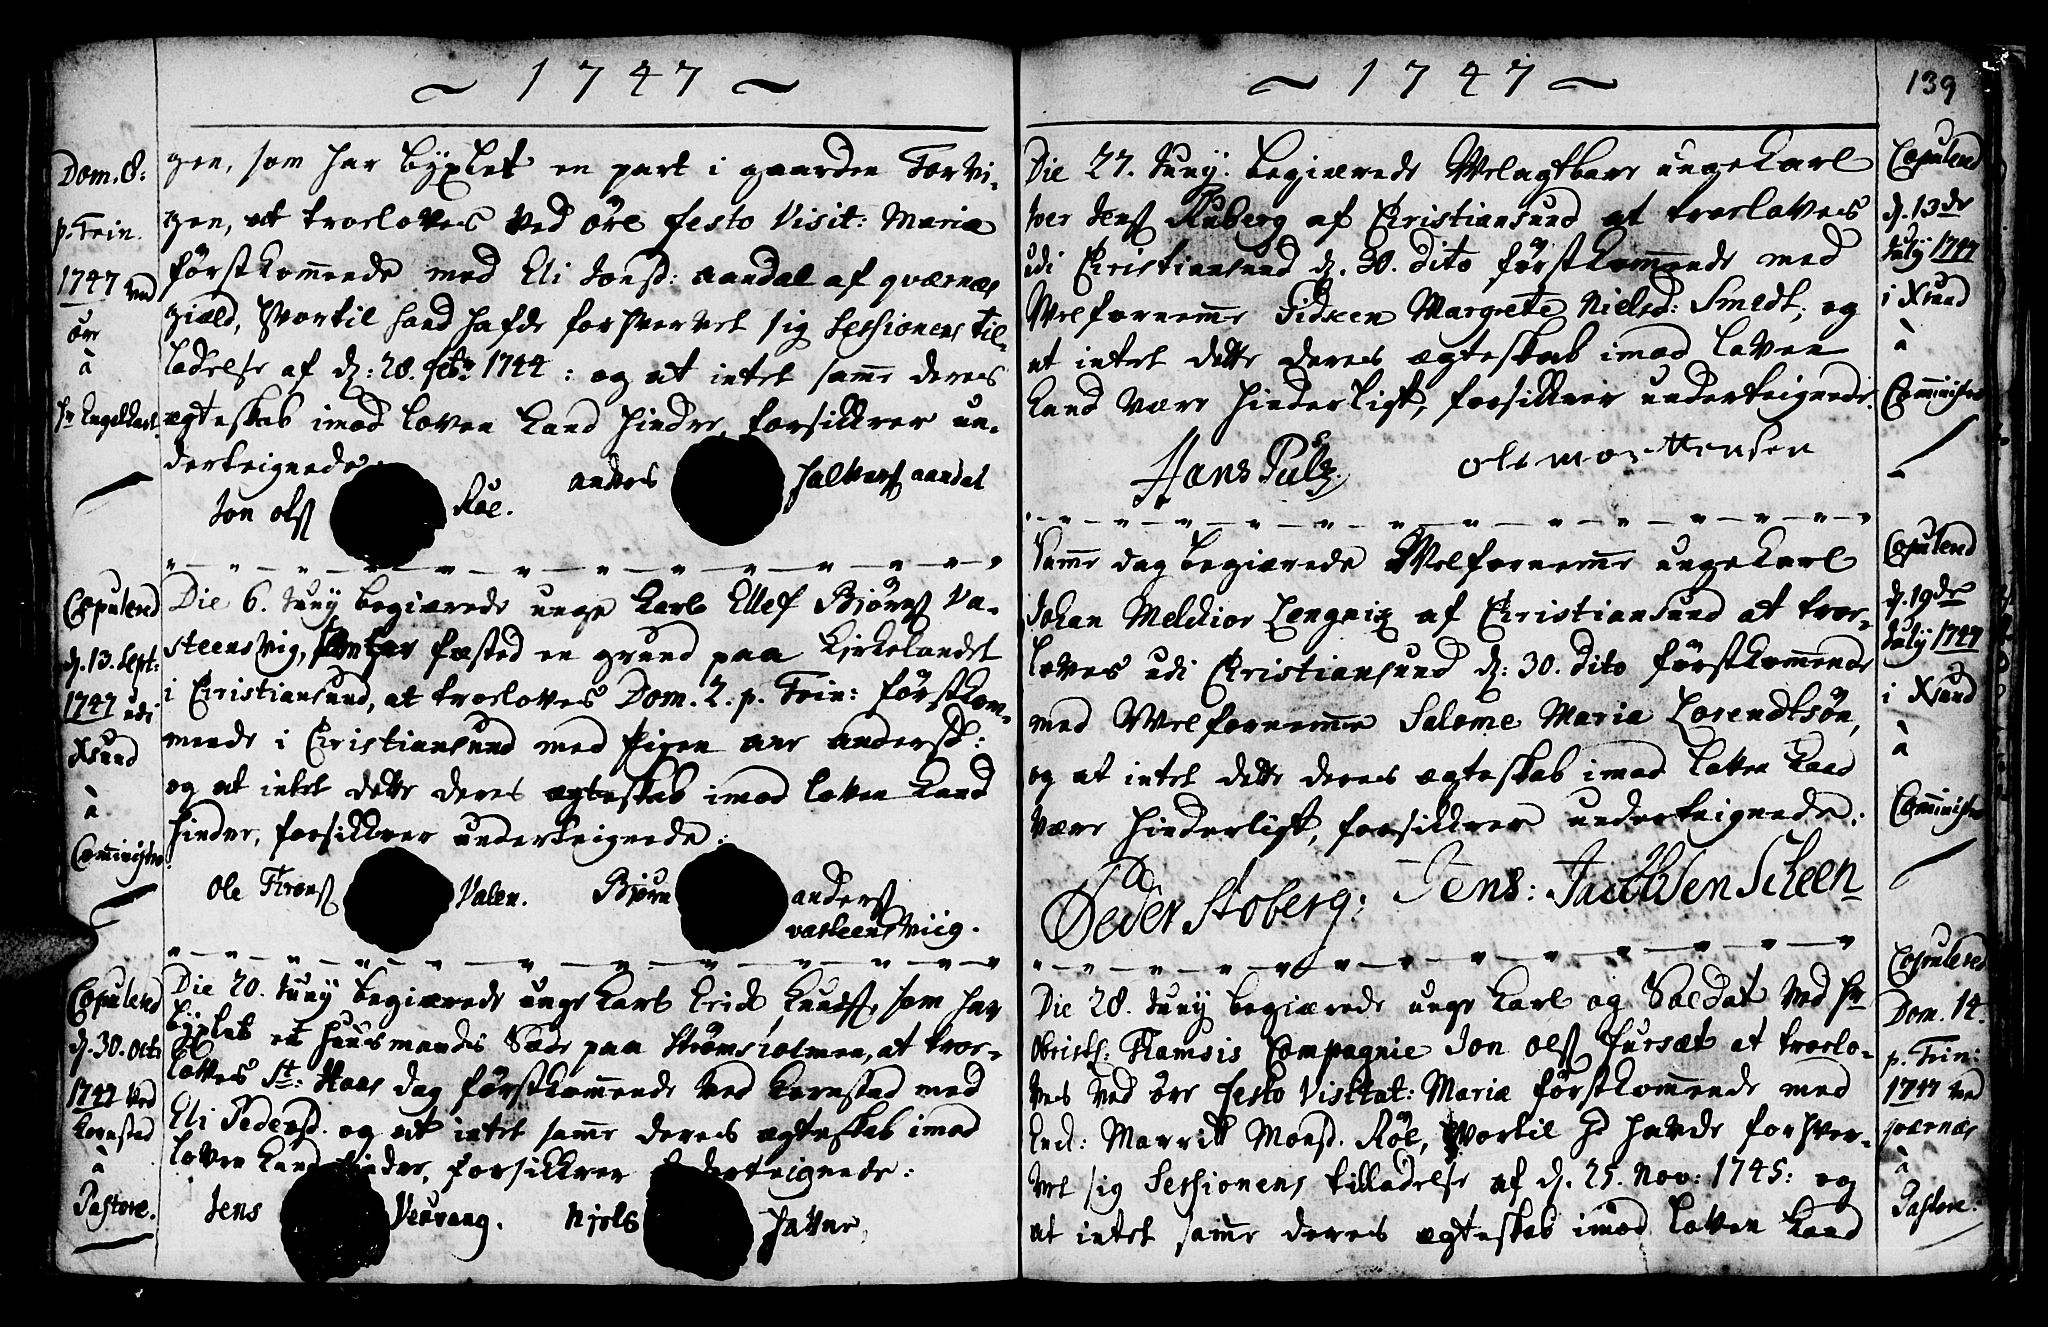 ~ 1747 ~
Dom. 8:
p. Trin.
1747 ved
Öre
à
Hr Engelhart.
gen, som har byxlet en part i gaarden Torvi-
gen, at troeloves ved Öre festo Visit: Mariæ
förstkommende med Eli Jonsd: Aandal af Qværnæs
gield, hvortil hand hafde forhvervet sig Sessionens til-
ladelse af d: 28. Febr: 1744: og at intet samme deres
ægteskab imod loven kand hindre, forsikkrer un-
derteignede.
Jon Ols Röe. Anders Halvors Aandal
Copulered
d. 13. Sept:
1747 udi
Xsund
à
Comministro.
Die 6. Juny begiærede unge Karl Ellef Björns Va-
steensvig, som har fæsted en grund paa Kirkelandet
i Christiansund, at troeloves Dom. 2. p. Trin: förstkom-
mende i Christiansund med Pigen Ane Andersd:
og at intet dette deres ægteskab imod loven kand
hindre, forsikkrer underteignede:
Ole Trons Valen. Björn Anders
Vasteensviig.
Copulered
d. 30. Oct:
1747 ved
Kornstad
à
Pastore.
Die 20. Juny begiærede unge Karl Erich Knuds, som har
byxlet et Huusmands Sæde paa Strömsholmen, at troe-
loves St: Hans dag förstkommende ved Kornstad med
Eli Pedersd. og at intet samme deres ægteskab imod
loven kand hindre, forsikkrer underteignede:
Jens Vevang. Njels Hatne.
~ 1747 ~
139
Die 27. Juny begiærede Velagtbare unge Karl
Jens Ruberg af Christiansund at troeloves
udi Christiansund d. 30. dito förstkommende med
Velfornemme Pideen Margrete Nielsd: Smedt, og
at intet dette deres ægteskab imod loven
kand være hinderligt, forsikkrer underteignede.
Hans Pulz. Ole Morttensen
Copulered
d. 13de
July 1747
i Xsund
à
Comministro
Samme dag begiærede Velfornemme unge Karl
Johan Melchior Lengnix af Christiansund at troe-
loves udi Christiansund d: 30. dito förstkommende
med Velfornemme Salome Maria Lorendtsön,
og at intet dette deres ægteskab imod loven kand
være hinderligt, forsikkrer underteignede:
Peder Stoberg: Jens: Jacobsen Scheen
Copulered
d. 19de
July 1747
i Xsund
à
Comministro
Die 28. Juny begiærede unge Karl og Soldat ved Hr
Obristl: Ramsis Compagnie Jon Ols Fursæt at troelo-
ves ved Öre festo Visitat: Mariæ förstkommende med
Enck: Marritt Monsd. Röe, hvortil hd havde forhver-
vet sig Sessionens tilladelse af d. 25. Nov: 1745: og
at intet samme deres ægteskab imod loven kand
Copulered
Dom. 14.
p. Trin:
1747 ved
Qværnæs
à
Pastore: